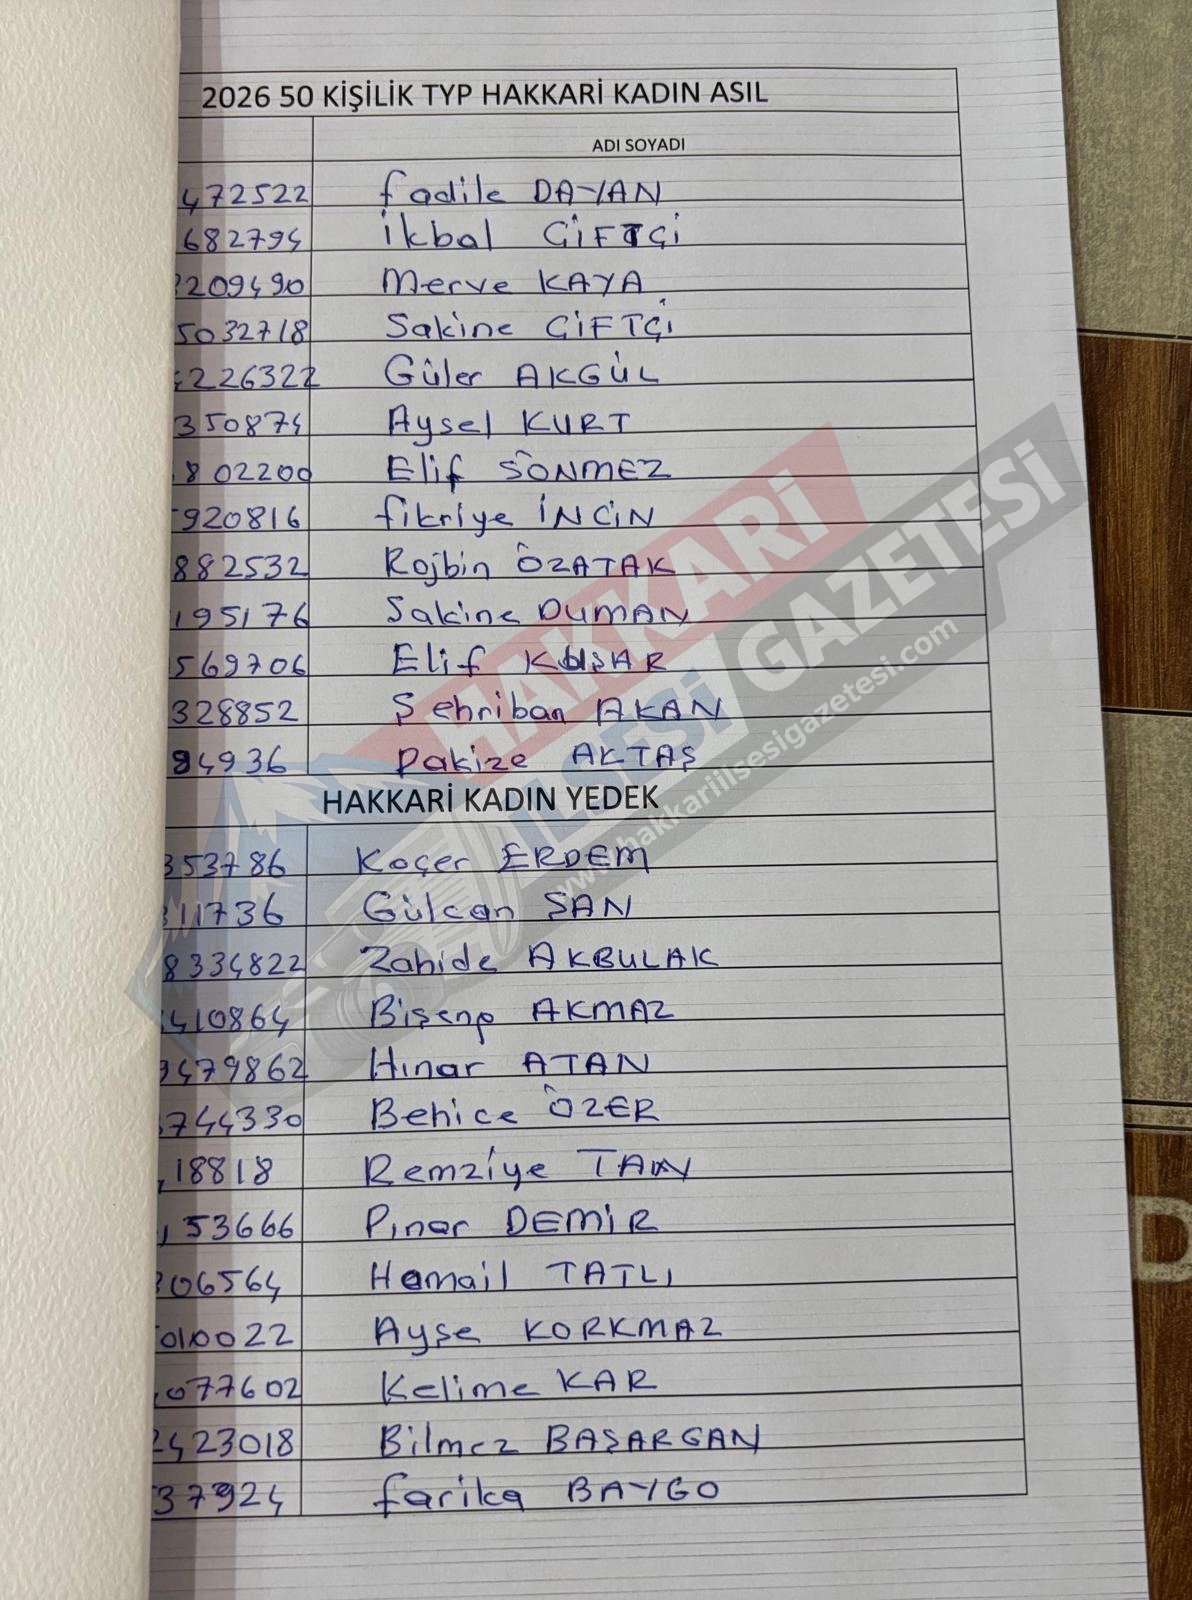 2026 50 KİŞİLİK TYP HAKKARİ KADIN ASIL
ADI SOYADI
472522 fadile DAYAN
682794 İkbal ÇİFTÇİ
209490 Merve KAYA
5032718 Sakine ÇİFTÇİ
226322 Güler AKGÜL
350874 Aysel KURT
802200 Elif SÖNMEZ
920816 fikriye İNCİN
882532 Rojbin ÖZATAK
195176 Sakine DUMAN
569706 Elif KUŞAR
328852 Şehriban AKAN
94936 Pakize AKTAŞ
HAKKARİ KADIN YEDEK
353786 Koçer ERDEM
311736 Gülcan ŞAN
8334822 Zahide AKBULAK
410864 Bişenp AKMAZ
479862 Hınar ATAN
744330 Behice ÖZER
18818 Remziye
153666 Pınar DEMİR
306564 Hamail TATLI
010022 Ayşe KORKMAZ
077602 Kelime KAR
2423018 Bilmez BAŞARGAN
37924 farika BAYGO
HAKKARİ
İLSESİ GAZETESİ
www.hakkariilsesigazetesi.com
D